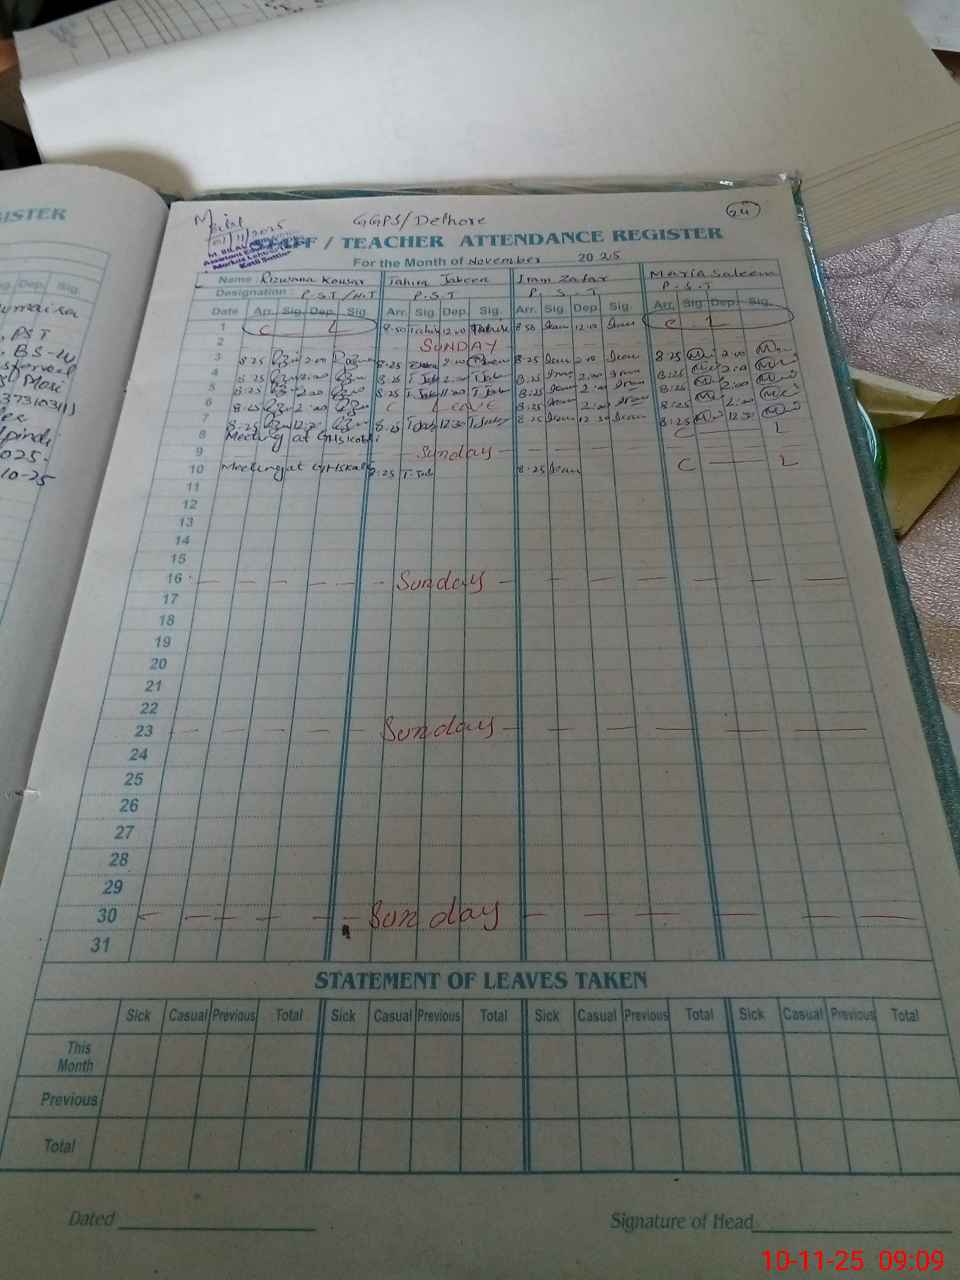 GISTER
Sig. Dep. Sig.
umaira
PST
BS-
37310311
025-
10-25
GGPS/Delhore
24
11/2025
M. BILAL
STAFF / TEACHER ATTENDANCE REGISTER
For the Month of November 2025
Name Rizwana Kousar Tahira Jabeen Iram Zafar Maria Saleem
Designation P.S.T / H.T P.S.T P.S.T P.S.T
Date Arr. Sig. Dep. Sig. Arr. Sig. Dep. Sig. Arr. Sig. Dep. Sig. Arr. Sig. Dep. Sig.
1 C L 8:50 Tahira 12:00 Tahira 8:50 Iram 12:00 Iram C L
2 SUNDAY
3 8:25 2:00 8:25 2:00 8:25 Iram 2:00 Iram 8:25 2:00
4 8:25 2:00 8:25 T.Jab 2:00 T.Jab 8:25 Iram 2:00 Iram 8:25 2:00
5 8:25 2:00 8:25 T.Jab 11:20 T.Jab 8:25 Iram 2:00 Iram 8:25 2:00
6 8:25 2:00 C Leave 8:25 Iram 2:00 Iram 8:25 2:00
7 8:25 12:30 8:25 T.Jab 12:30 T.Jab 8:25 Iram 12:30 Iram 8:25 12:30
8 Meeting at GHS C L
9 Sunday
10 Meeting at GHS 8:25 T.Jab 8:25 Iram C L
11
12
13
14
15
16 Sunday
17
18
19
20
21
22
23 Sunday
24
25
26
27
28
29
30 Sunday
31
STATEMENT OF LEAVES TAKEN
Sick Casual Previous Total Sick Casual Previous Total Sick Casual Previous Total Sick Casual Previous Total
This
Month
Previous
Total
Dated Signature of Head
10-11-25 09:09